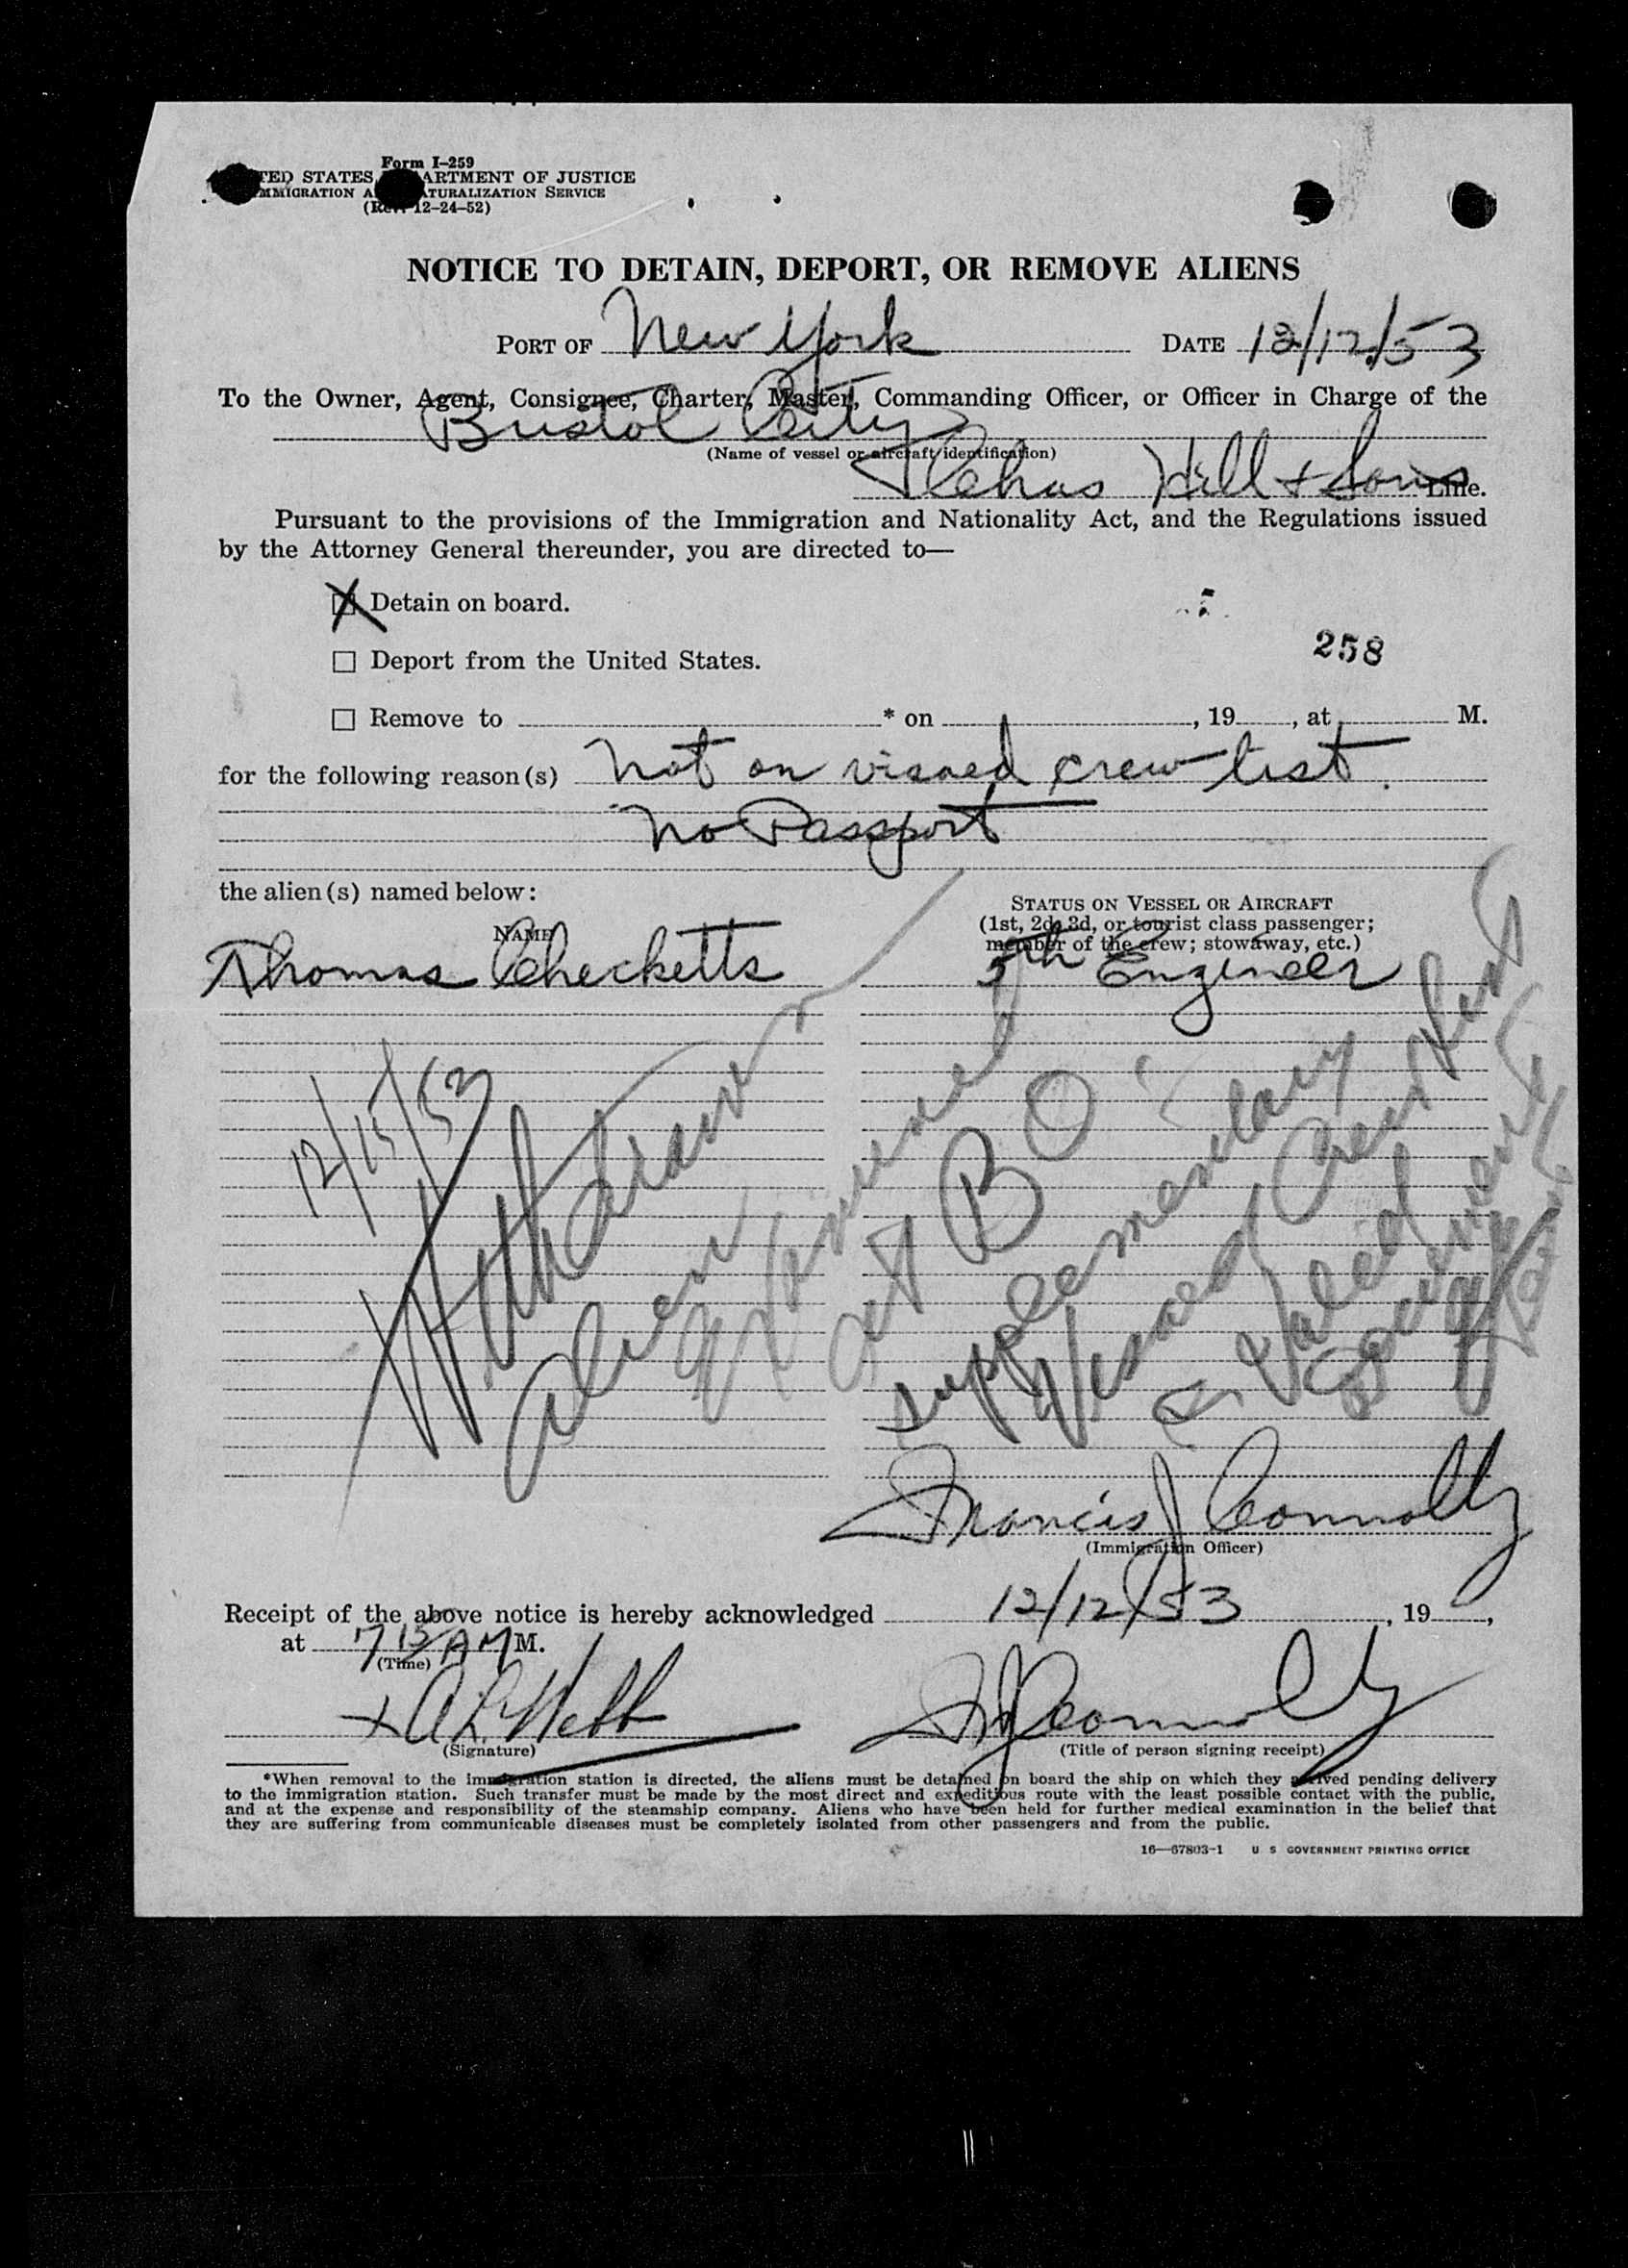 Form I-259
TED STATES ARTMENT OF JUSTICE
MMIGRATION A TURALIZATION SERVICE
(Rev. 12-24-52)
NOTICE TO DETAIN, DEPORT, OR REMOVE ALIENS
PORT OF New York DATE 12/12/53
To the Owner, Agent, Consignee, Charter, Master, Commanding Officer, or Officer in Charge of the
Bristol City
(Name of vessel or aircraft identification)
Chas Hill + Sons Line.
Pursuant to the provisions of the Immigration and Nationality Act, and the Regulations issued
by the Attorney General thereunder, you are directed to—
X Detain on board.
258
☐ Deport from the United States.
☐ Remove to * on , 19 , at M.
for the following reason(s) Not on visaed crew list.
No Passport
the alien(s) named below:
STATUS ON VESSEL OR AIRCRAFT
(1st, 2d, 3d, or tourist class passenger;
member of the crew; stowaway, etc.)
NAME
Thomas Checketts 5th Engineer
12/15/53
alien
examined
at BO
supplementary
Visaed Crew List
& Valid
Document
Francis J Connolly
(Immigration Officer)
Receipt of the above notice is hereby acknowledged 12/12/53 , 19 ,
at 7 15 AM M.
(Time)
x A L Webb FJConnolly
(Signature) (Title of person signing receipt)
*When removal to the immigration station is directed, the aliens must be detained on board the ship on which they arrived pending delivery
to the immigration station. Such transfer must be made by the most direct and expeditious route with the least possible contact with the public,
and at the expense and responsibility of the steamship company. Aliens who have been held for further medical examination in the belief that
they are suffering from communicable diseases must be completely isolated from other passengers and from the public.
16—67803-1 U S GOVERNMENT PRINTING OFFICE